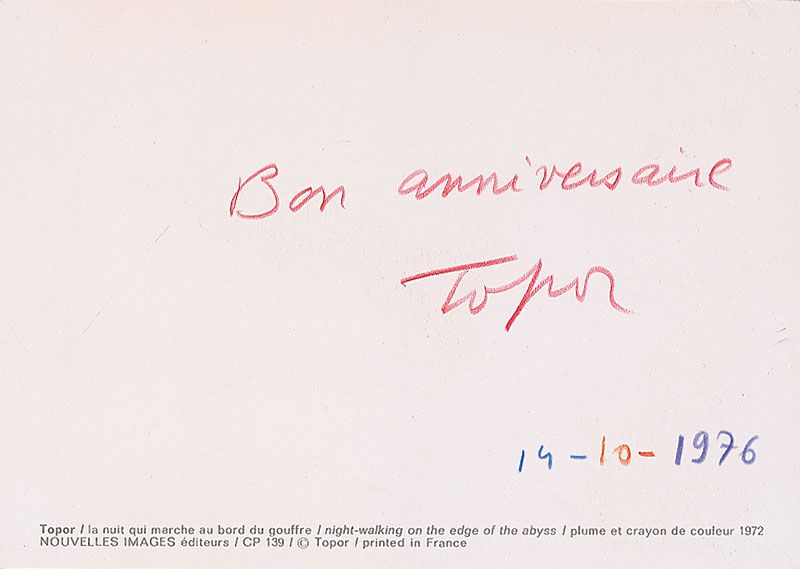 Bon anniversaire
Topor
14-10-1976
Topor / la nuit qui marche au bord du gouffre / night-walking on the edge of the abyss / plume et crayon de couleur 1972
NOUVELLES IMAGES éditeurs / CP 139 / © Topor / printed in France